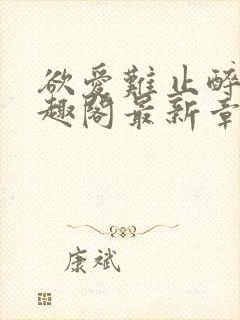 欲爱難止醉
趣閣最新章
康斌